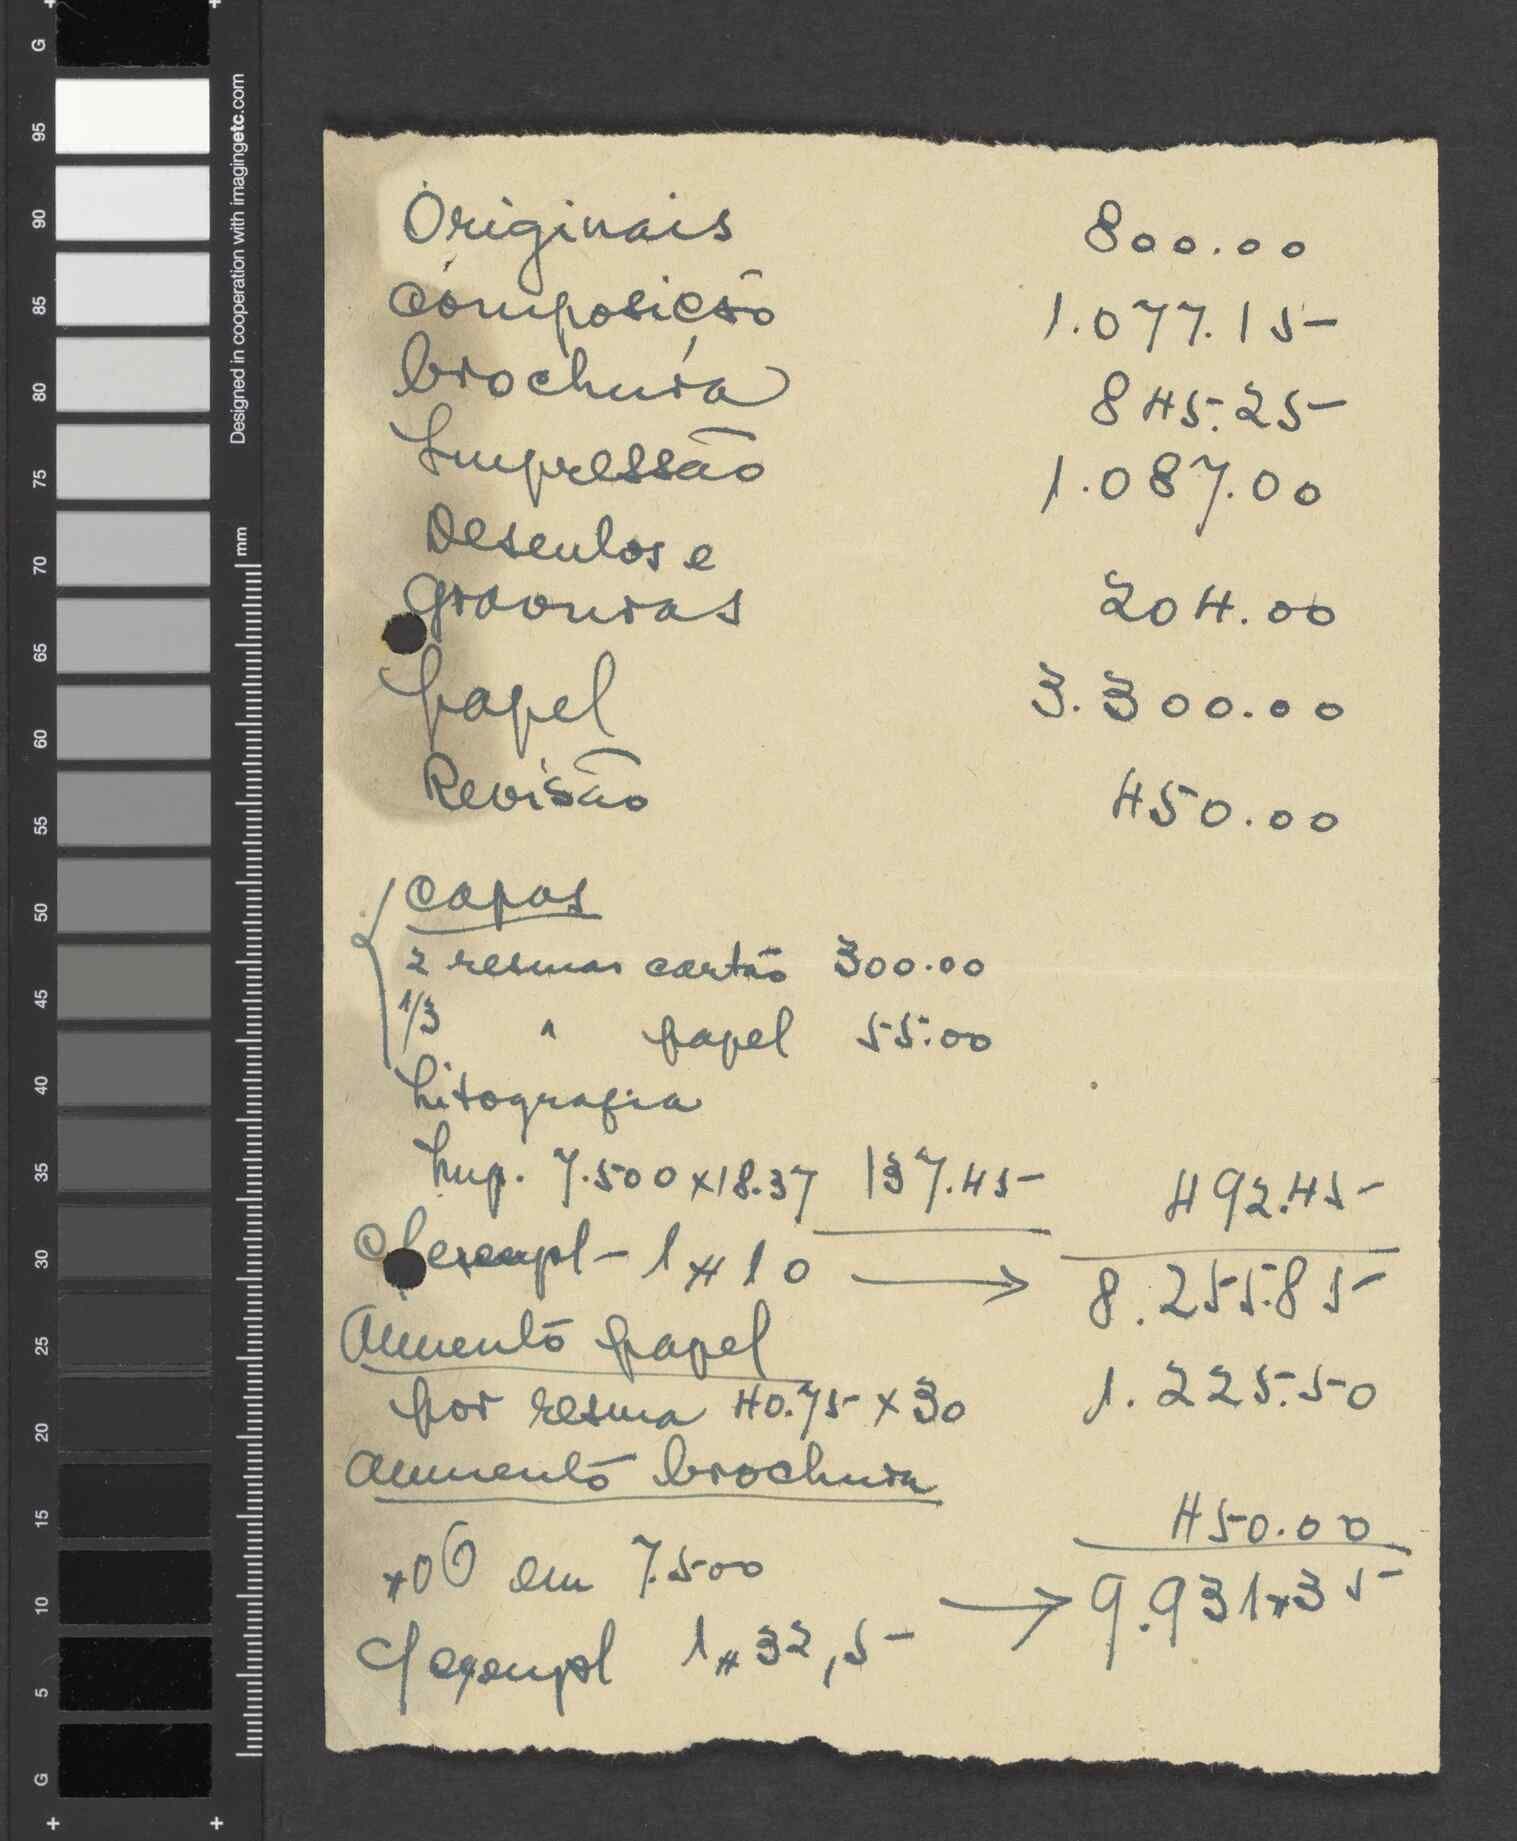 G
95
90
85
80
75
70
65
60
55
50
45
40
35
30
25
20
15
10
5
G
Designed in cooperation with imagingetc.com
mm
Originais 800.00
composição 1.077.15
brochura 845.25
Impressão 1.087.00
Desenhos e
gravuras 204.00
papel 3.300.00
Revisão 450.00
capas
2 resmas cartão 300.00
1/3 " papel 55.00
Litografia
Imp. 7.500 x 18.37 137.45 492.45
C/ exempl - 1$10 → 8.255.85
Aumento papel
por resma 40.75 x 30 1.225.50
aumento brochura
450.00
$06 em 7.500
→ 9.931$35
C/ exempl 1$32,5